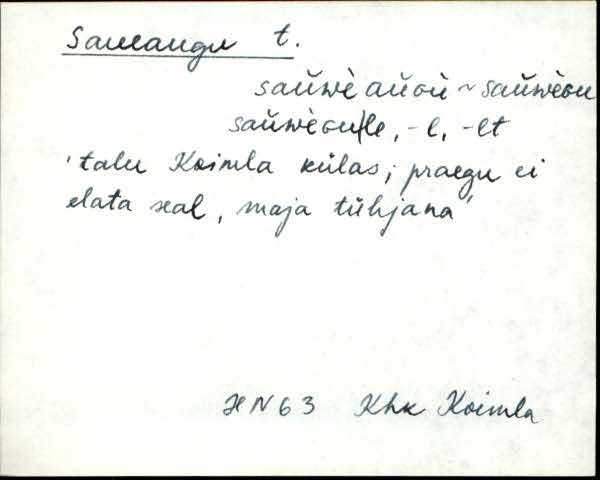 Saueaugu t.
saŭwè aŭɢù ~ saŭwèɢu
saŭwèɢu|le, -l, -lt
'talu Koimla külas; praegu ei
elata seal, maja tühjana'
HN 63 Khk Koimla